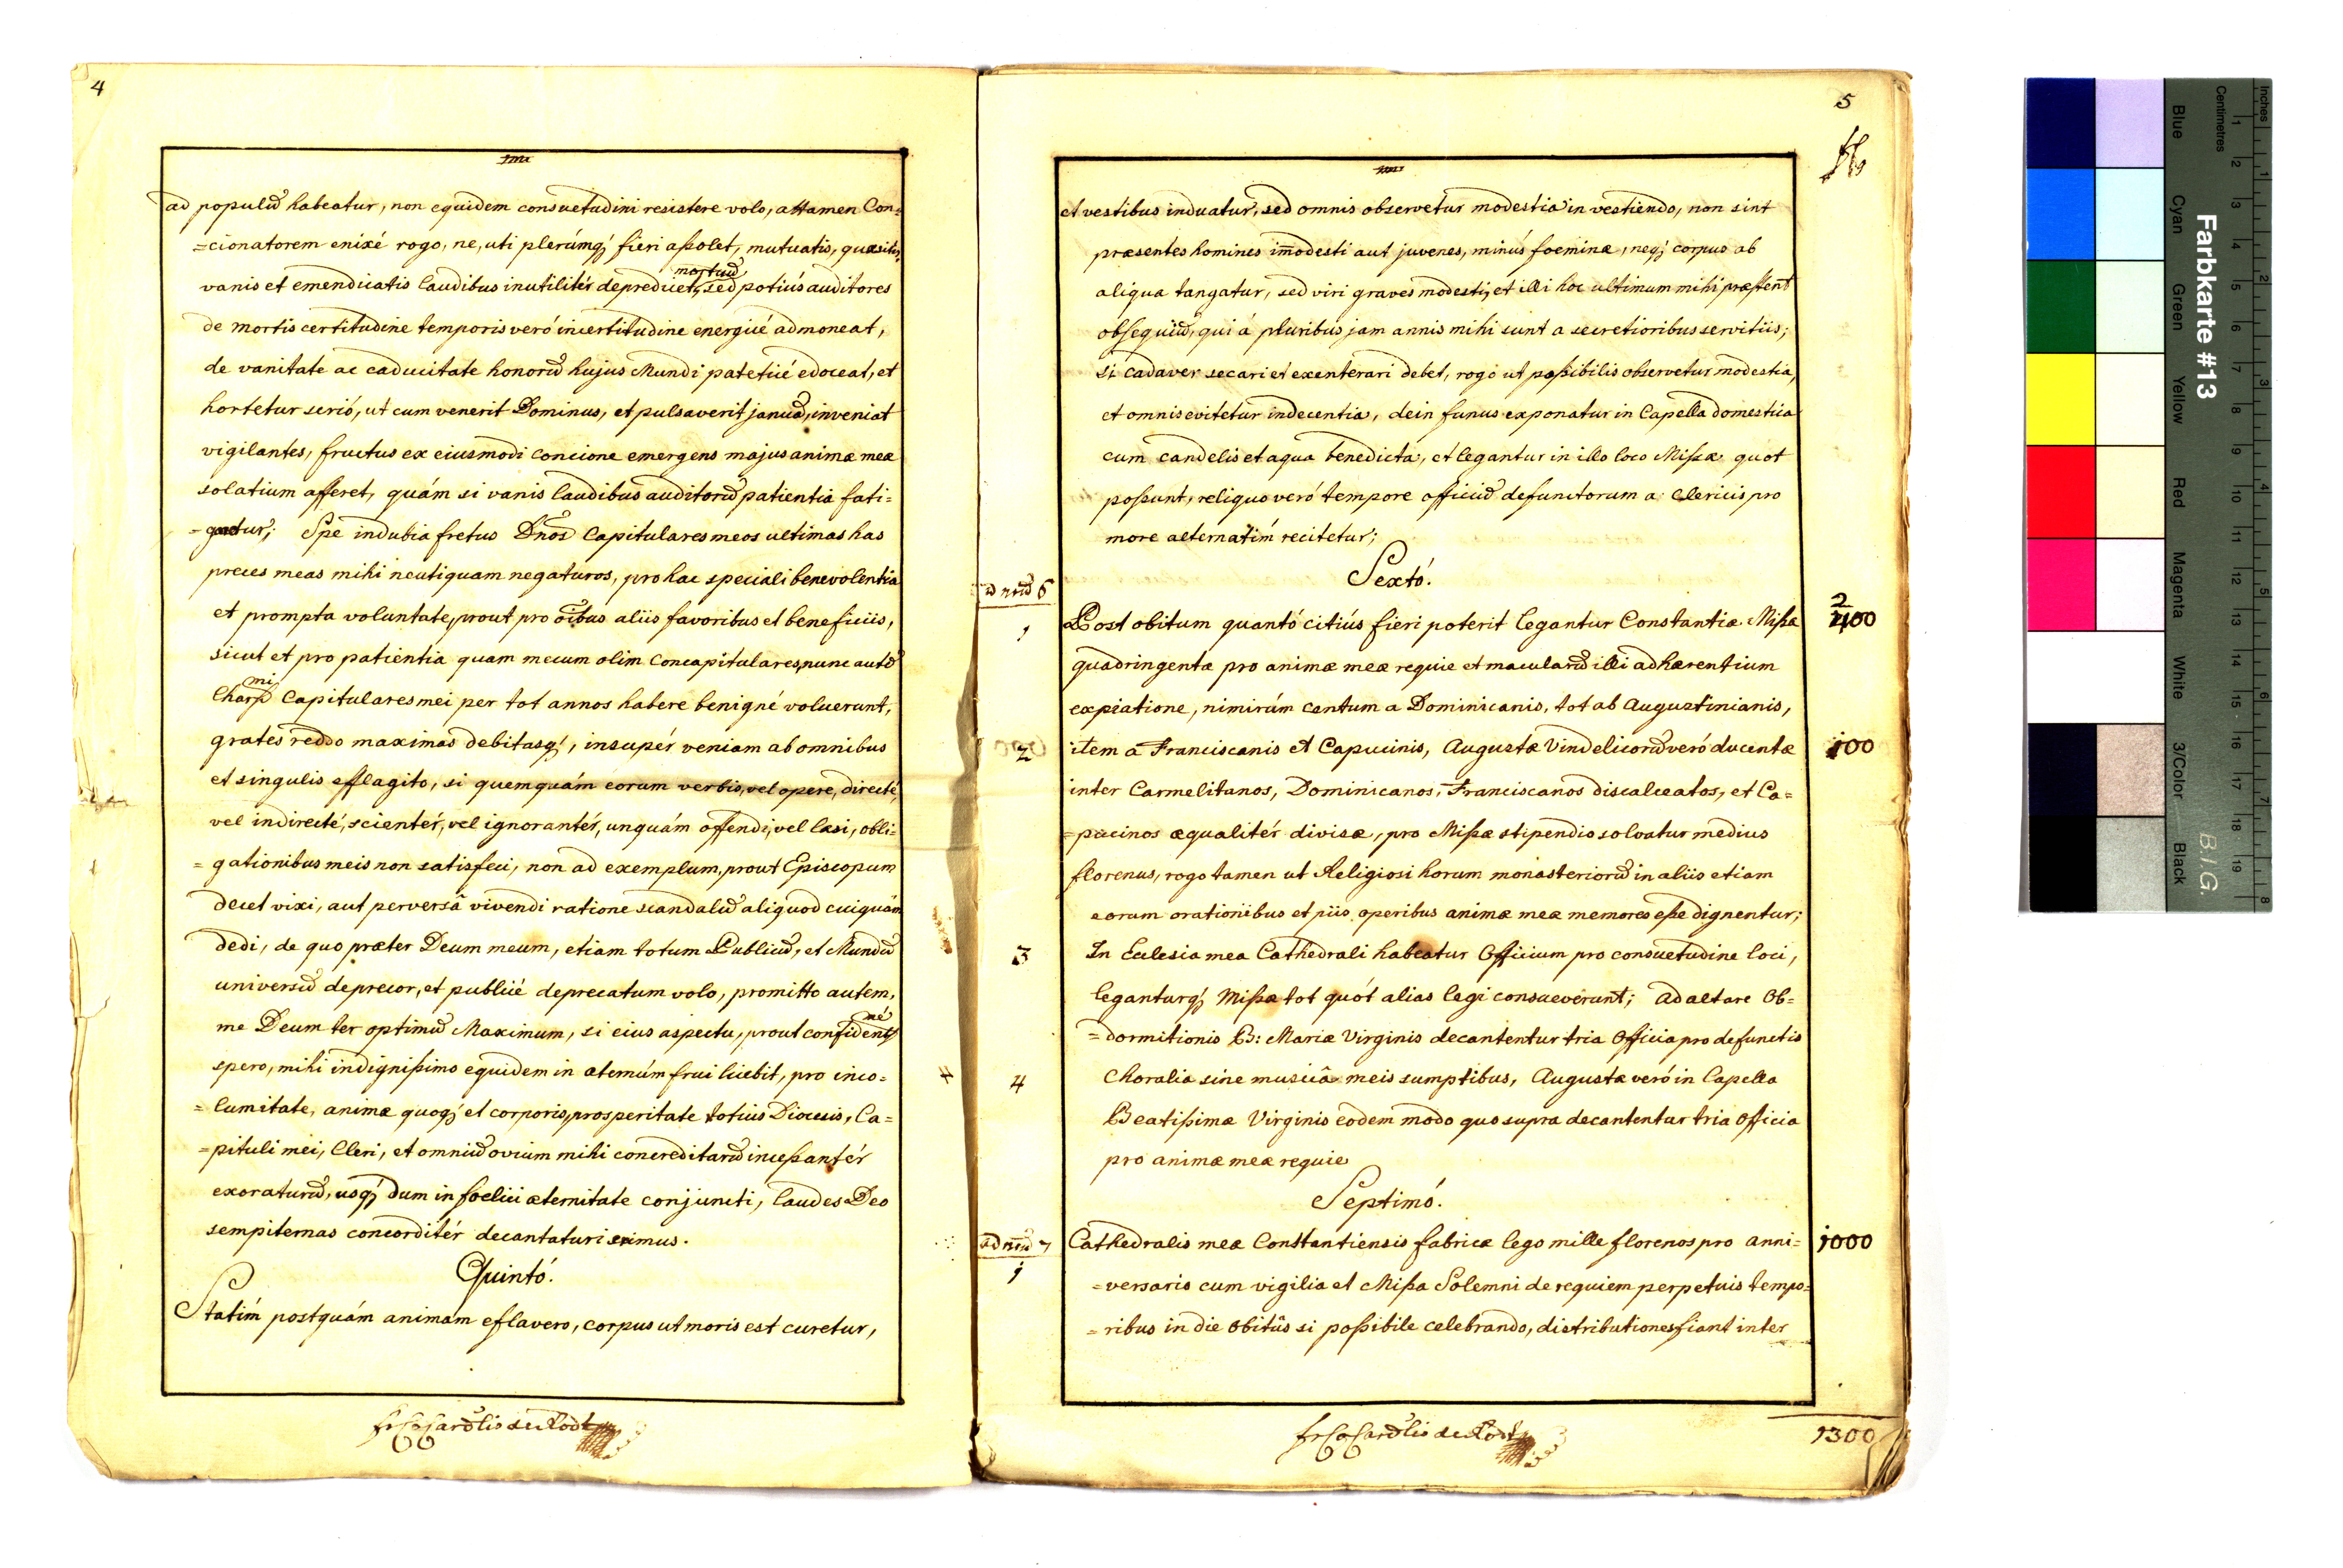 4
ad populum habeatur, non equidem consuetudini resistere volo, attamen Con=
=cionatorem enixé rogo, ne, uti plerúmq; fieri aßolet, mutuatis, quæsitis,
mortuum
vanis et emendicatis laudibus inutilitér deprædicet, sed potiús auditores
de mortis certitudine temporis veró incertitudine energicé admoneat,
de vanitate ac caducitate honorum hujus Mundi pateticé edoceat, et
hortetur serió, ut cum venerit Dominus, et pulsaverit januam, inveniat
vigilantes, fructus ex eiusmodi concione emergens majus animæ meæ
solatium afferet, quám si vanis laudibus auditorum patientia fati=
=getur; Spe indubia fretus Dnos Capitulares meos ultimas has
preces meas mihi neutiquam negaturos, pro hac speciali benevolentia
et prompta voluntate, prout pro oibus aliis favoribus et beneficiis,
sicut et pro patientia quam mecum olim Concapitulares, nunc autem
mi
Charß Capitulares mei per tot annos habere benigné voluerunt,
grates reddo maximas debitasq;, insupér veniam ab omnibus
et singulis efflagito, si quemquám eorum verbis, vel opere, directé,
vel indirecté, scientér, vel ignorantér, unquám offendi, vel læsi, obli=
=gationibus meis non satisfeci, non ad exemplum, prout Episcopum
decet vixi, aut perversâ vivendi ratione scandalum aliquod cuiquám
dedi, de quo præter Deum meum, etiam totum Publicum, et Mundum
universum deprecor, et publicé deprecatum volo, promitto autem,
mé
me Deum ter optimum Maximum, si eius aspectu, prout confidentß
spero, mihi indignißimo equidem in æternúm frui licebit, pro inco=
=lumitate, animæ quoq; et corporis, prosperitate totius Diœcesis, Ca=
=pituli mei, Cleri, et omnium ovium mihi concreditarum inceßantér
exoraturum, usq; dum in fœlici æternitate conjuncti, laudes Deo
sempiternas concorditér decantaturi erimus.
Quintó.
Statím postquám animam eflavero, corpus ut moris est curetur,
5
et vestibus induatur, sed omnis observetur modestia in vestiendo, non sint
præsentes homines imodesti aut juvenes, minús fœminæ, neq; corpus ab
aliqua tangatur, sed viri graves modesti, et illi hoc ultimum mihi præstent
obsequium, qui á pluribus jam annis mihi sunt a secretioribus servitiis;
si cadaver secari et exenterari debet, rogo ut poßibilis observetur modestia,
et omnis evitetur indecentia, dein funus exponatur in Capella domestica
cum candelis et aqua benedicta, et legantur in illo loco Mißæ quot
poßunt, reliquo veró tempore officium defunctorum a Clericis pro
more alternatím recitetur;
Sextó.
ad num 6
1 Post obitum quantó citiús fieri poterit legantur Constantiæ Mißæ 2400
quadringentæ pro animæ meæ requie et macularum illi adhærentium
expiatione, nimirúm centum a Dominicanis, tot ab Augustinianis,
2 item a Franciscanis et Capucinis, Augustæ Vindelicorum veró ducentæ 100
inter Carmelitanos, Dominicanos, Franciscanos discalceatos, et Ca=
=pucinos æqualitér divisæ, pro Mißæ stipendio solvatur medius
florenus, rogo tamen ut Religiosi horum monasteriorum in aliis etiam
eorum orationibus et piis operibus animæ meæ memores eße dignentur;
3 In Ecclesia mea Cathedrali habeatur Officium pro consuetudine loci,
leganturq; Mißæ tot quót alias legi consueverunt; ad altare Ob=
=dormitionis B: Mariæ Virginis decantentur tria Officia pro defunctis
4 Choralia sine musicâ meis sumptibus, Augustæ veró in Capella
Beatißimæ Virginis eodem modo quo supra decantentur tria Officia
pro animæ meæ requie
Septimó.
ad num 7 Cathedralis meæ Constantiensis fabricæ lego mille florenos pro anni= 1000
1 =versario cum vigilia et Mißa Solemni de requiem perpetuis tempo=
=ribus in die Obitûs si poßibile celebrando, distributiones fiant inter
1300
Farbkarte #13
B.I.G.
Blue Cyan Green Yellow Red Magenta White 3/Color Black
Centimetres 1 2 3 4 5 6 7 8 9 10 11 12 13 14 15 16 17 18 19
Inches 1 2 3 4 5 6 7 8